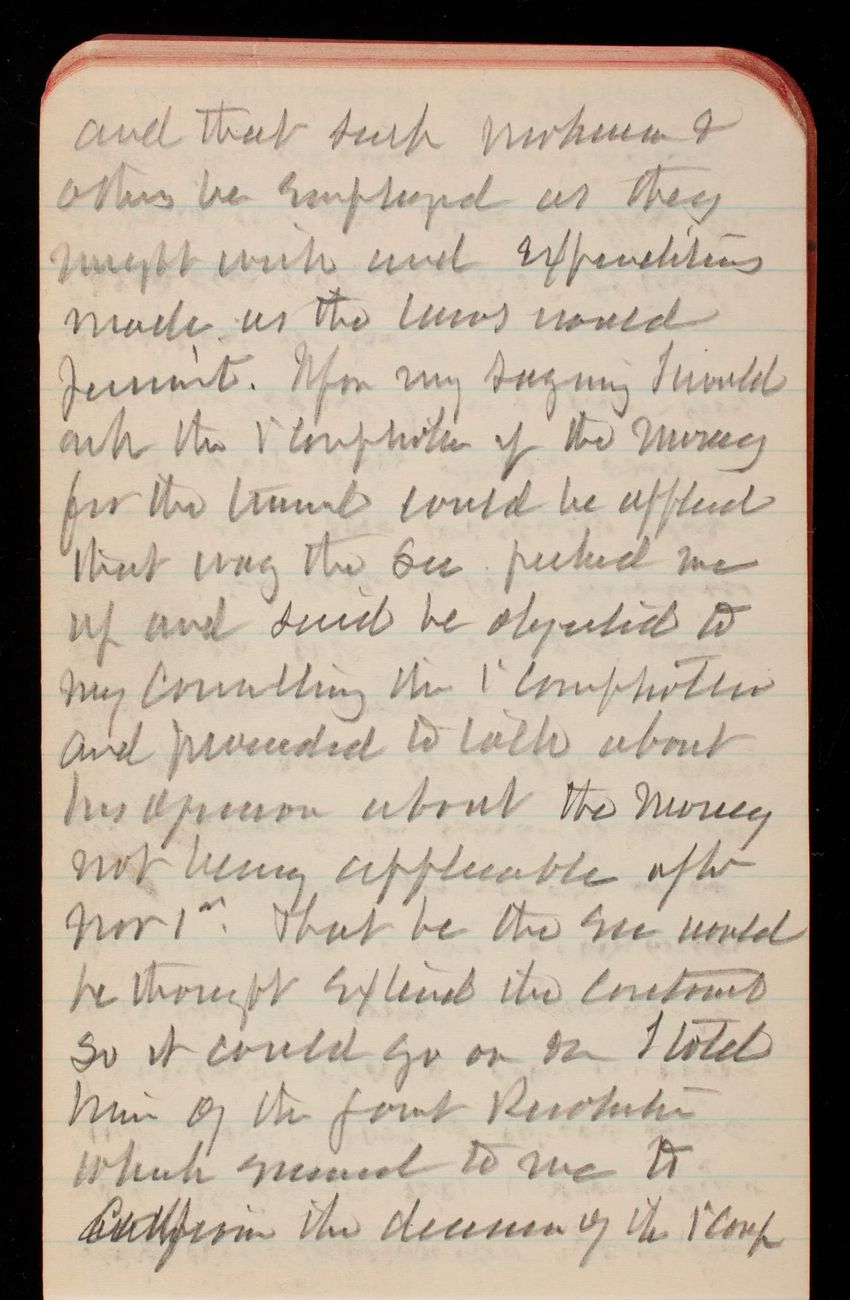 and that such workmen &
others be employed as they
might wish and expenditures
made as the laws would
permit. Upon my saying I would
ask the 1 Comptroller if the money
for the tunnel could be applied
that way the Sec picked me
up and said he objected to
my consulting the 1 Comptroller
and proceeded to talk about
his opinion about the money
not being applicable after
Nov 1st. That he the Sec would
he thought extend the contract
so it could go on &c I told
him of the joint Resolution
which seemed to me to
confirm the decision of the 1 Comp